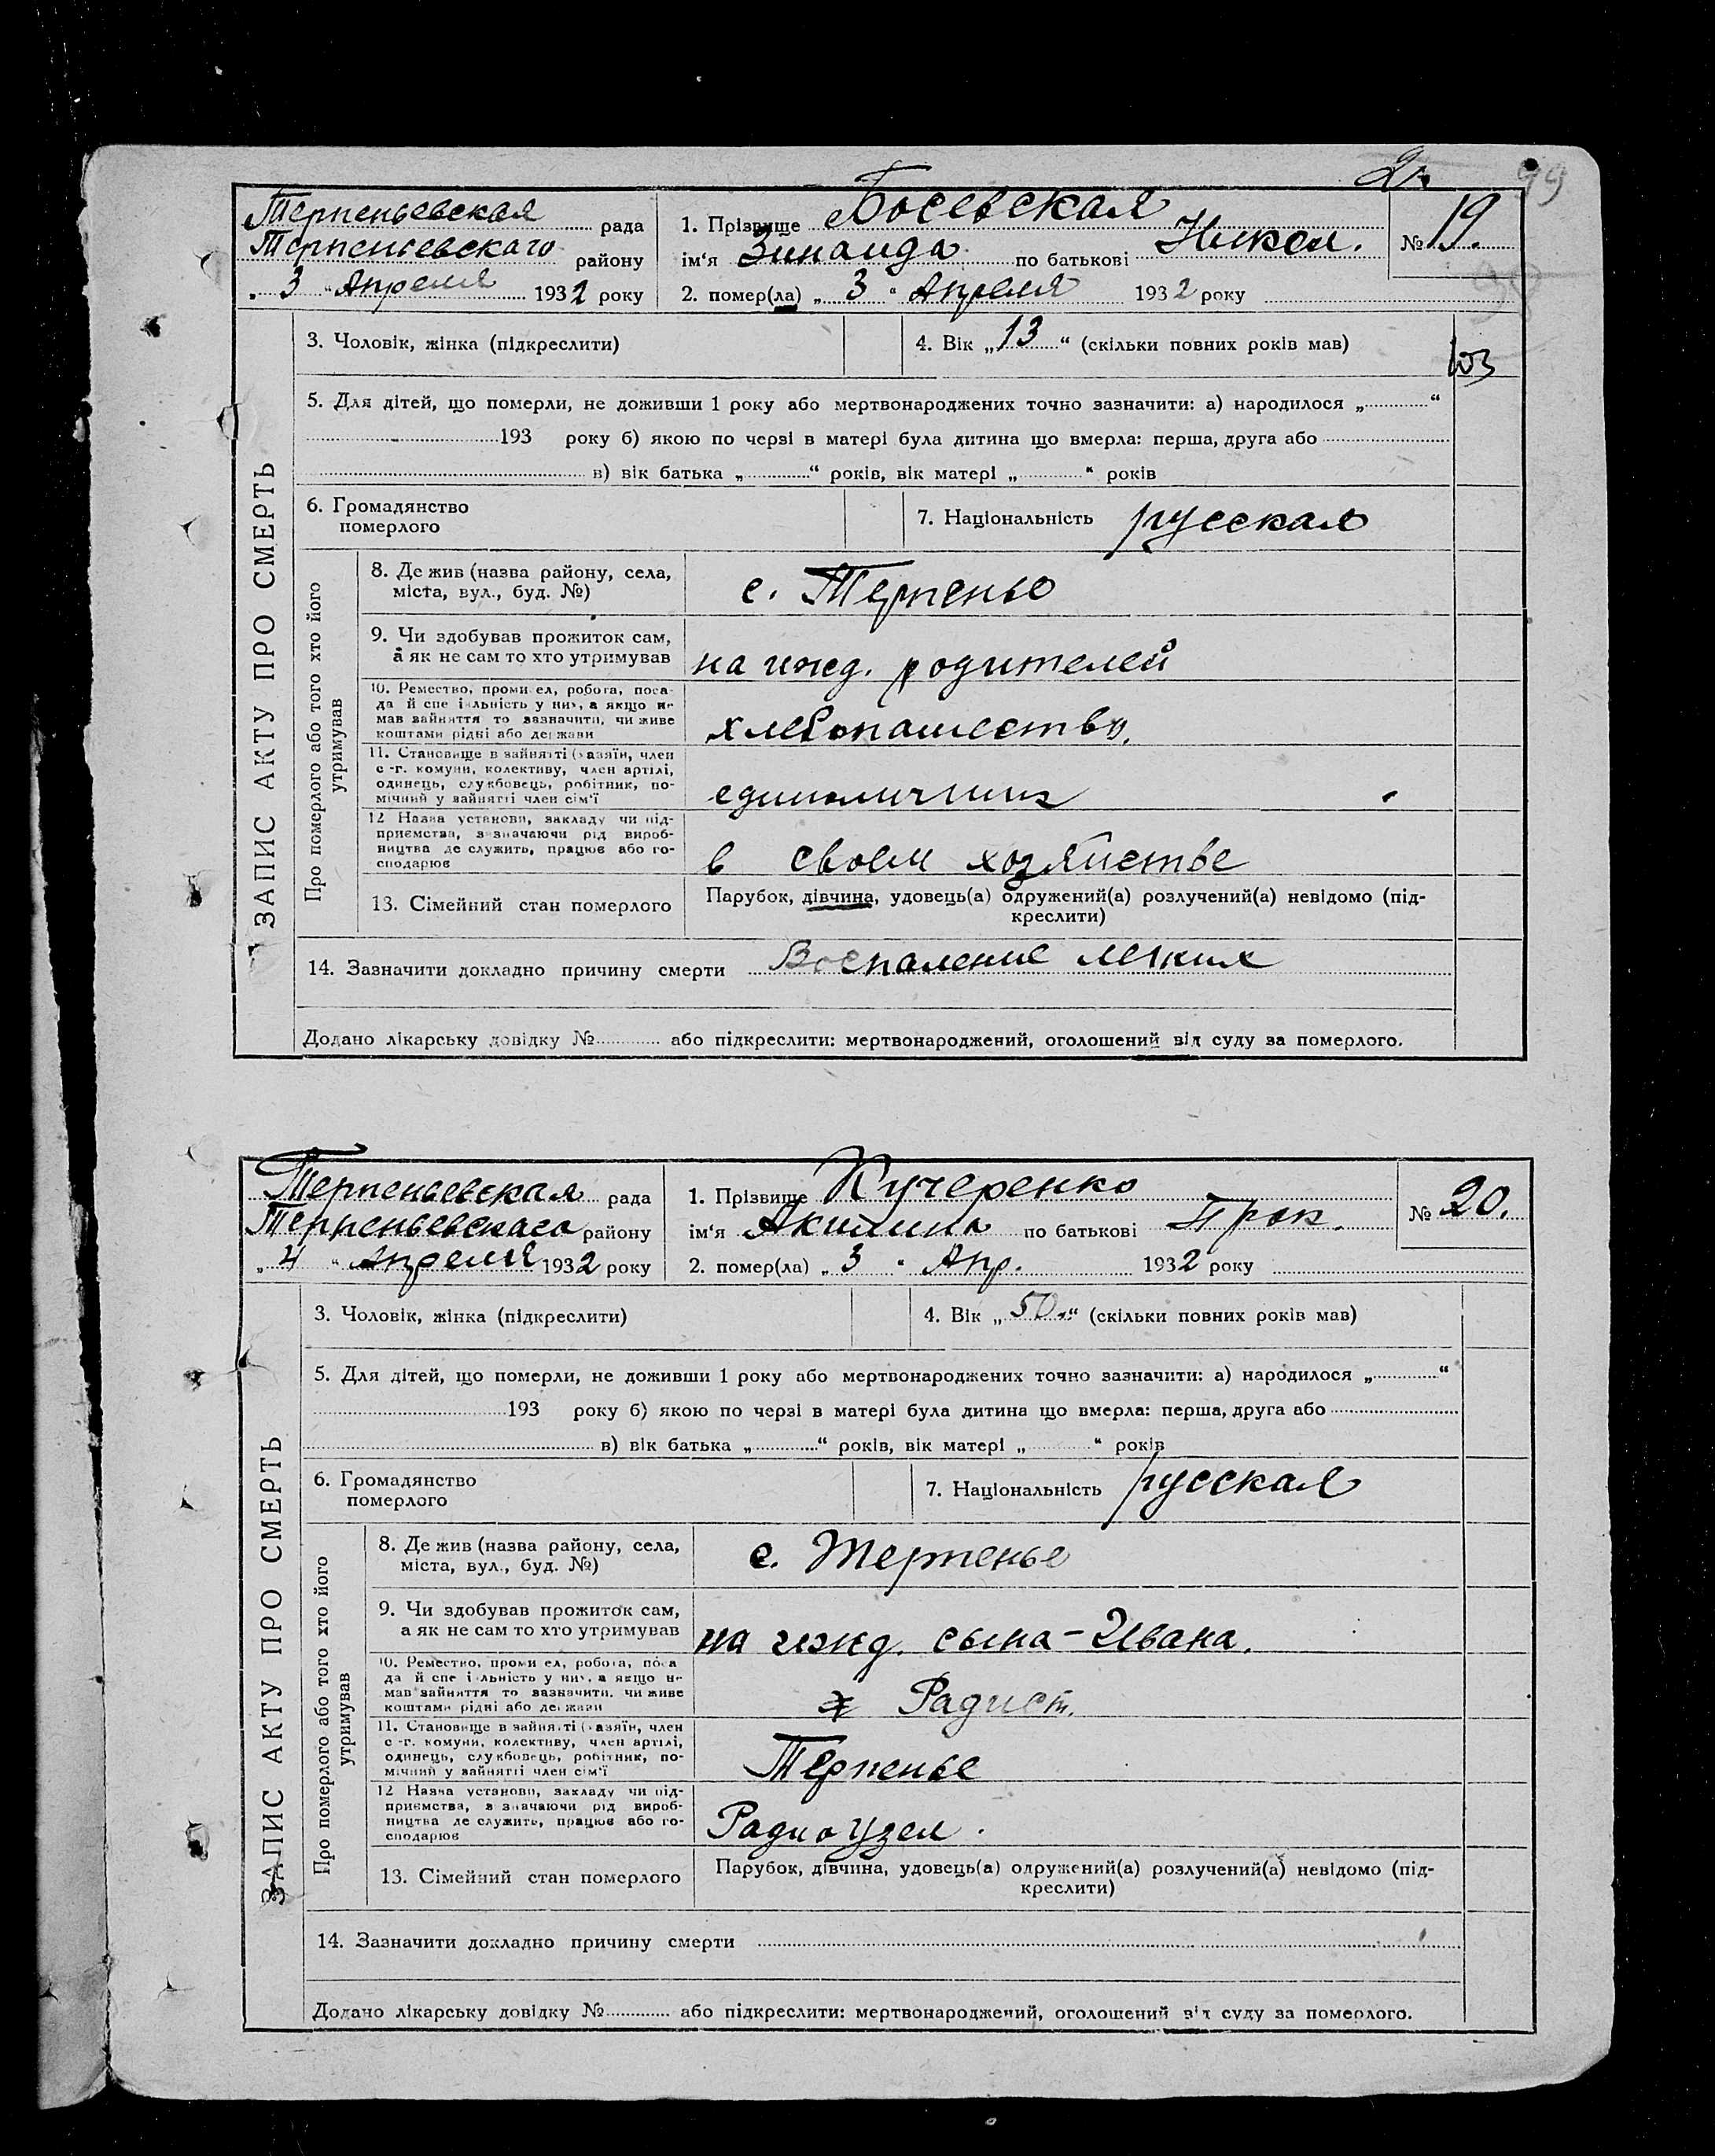 2. 99
Терпеньевская рада
1. Прізвище Босевская
№ 19.
Терпеньевскаго району
ім‘я Зинаида по батькові Никол.
„ 3 “ Апреля 1932 року
2. помер(ла) „ 3 “ Апреля 1932 року
ЗАПИС АКТУ ПРО СМЕРТЬ
3. Чоловік, жінка (підкреслити)
4. Вік „ 13 “ (скільки повних років мав)
103
5. Для дітей, що померли, не доживши 1 року або мертвонароджених точно зазначити: а) народилося „ “
193 року б) якою по черзі в матері була дитина що вмерла: перша, друга або
в) вік батька „ “ років, вік матері „ “ років
6. Громадянство
померлого
7. Національність русская
Про померлого або того хто його
утримував
8. Де жив (назва району, села,
міста, вул., буд. №)
с. Терпенье
9. Чи здобував прожиток сам,
а як не сам то хто утримував
на ижд. родителей
10. Ремество, промисел, робота, поса-
да й спеціальність у них, а якщо не
мав зайняття то зазначити, чи живе
коштами рідні або держави
хлебопашество.
11. Становище в зайнятті (хазяїн, член
с-г. комуни, колективу, член артілі,
одинець, службовець, робітник, по-
мічний у зайнятті член сім‘ї
единоличник
12 Назва установи, закладу чи під-
приємства, зазначаючи рід вироб-
ництва де служить, працює або го-
сподарює
в своем хозяйстве
13. Сімейний стан померлого
Парубок, дівчина, удовець(а) одружений(а) розлучений(а) невідомо (під-
креслити)
14. Зазначити докладно причину смерти Воспаление легких
Додано лікарську довідку № або підкреслити: мертвонароджений, оголошений від суду за померлого.
Терпеньевская рада
1. Прізвище Кучеренко
№ 20.
Терпеньевскаго району
ім‘я Акилина по батькові Прок.
„ 4 “ Апреля 1932 року
2. помер(ла) „ 3 “ Апр. 1932 року
ЗАПИС АКТУ ПРО СМЕРТЬ
3. Чоловік, жінка (підкреслити)
4. Вік „ 50 “ (скільки повних років мав)
5. Для дітей, що померли, не доживши 1 року або мертвонароджених точно зазначити: а) народилося „ “
193 року б) якою по черзі в матері була дитина що вмерла: перша, друга або
в) вік батька „ “ років, вік матері „ “ років
6. Громадянство
померлого
7. Національність русская
Про померлого або того хто його
утримував
8. Де жив (назва району, села,
міста, вул., буд. №)
с. Терпенье
9. Чи здобував прожиток сам,
а як не сам то хто утримував
на ижд. сына - Ивана.
10. Ремество, промисел, робота, поса
да й спеціальність у них, а якщо не
мав зайняття то зазначити, чи живе
коштами рідні або держави
Радист.
11. Становище в зайнятті (хазяїн, член
с-г. комуни, колективу, член артілі,
одинець, службовець, робітник, по-
мічний у зайнятті член сім‘ї
Терпенье
12 Назва установи, закладу чи під-
приємства, зазначаючи рід вироб-
ництва де служить, працює або го-
сподарює
Радио узел.
13. Сімейний стан померлого
Парубок, дівчина, удовець(а) одружений(а) розлучений(а) невідомо (під-
креслити)
14. Зазначити докладно причину смерти
Додано лікарську довідку № або підкреслити: мертвонароджений, оголошений від суду за померлого.